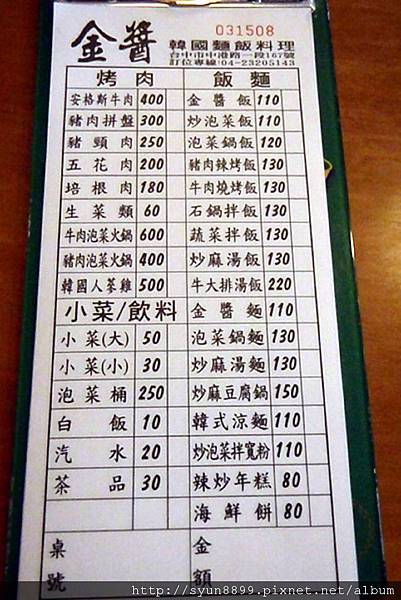 金醬
031508
韓國麵飯料理
台中市中港路一段167號
訂位專線:04-23205143
烤肉 飯麵
安格斯牛肉 400 金醬飯 110
豬肉拼盤 300 炒泡菜飯 110
豬頸肉 250 泡菜鍋飯 120
五花肉 200 豬肉辣烤飯 130
培根肉 180 牛肉燒烤飯 130
生菜類 60 石鍋拌飯 130
牛肉泡菜火鍋 600 蔬菜拌飯 130
豬肉泡菜火鍋 400 炒麻湯飯 130
韓國人蔘雞 500 牛大排湯飯 220
小菜/飲料 金醬麵 110
小菜(大) 50 泡菜鍋麵 130
小菜(小) 30 炒麻湯麵 130
泡菜桶 250 炒麻豆腐鍋 150
白飯 10 韓式涼麵 110
汽水 20 炒泡菜拌寬粉 110
茶品 30 辣炒年糕 80
海鮮餅 80
桌號 金額
http://syun8899.pixnet.net/album